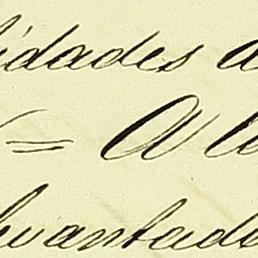 idades a
= A l
levantado